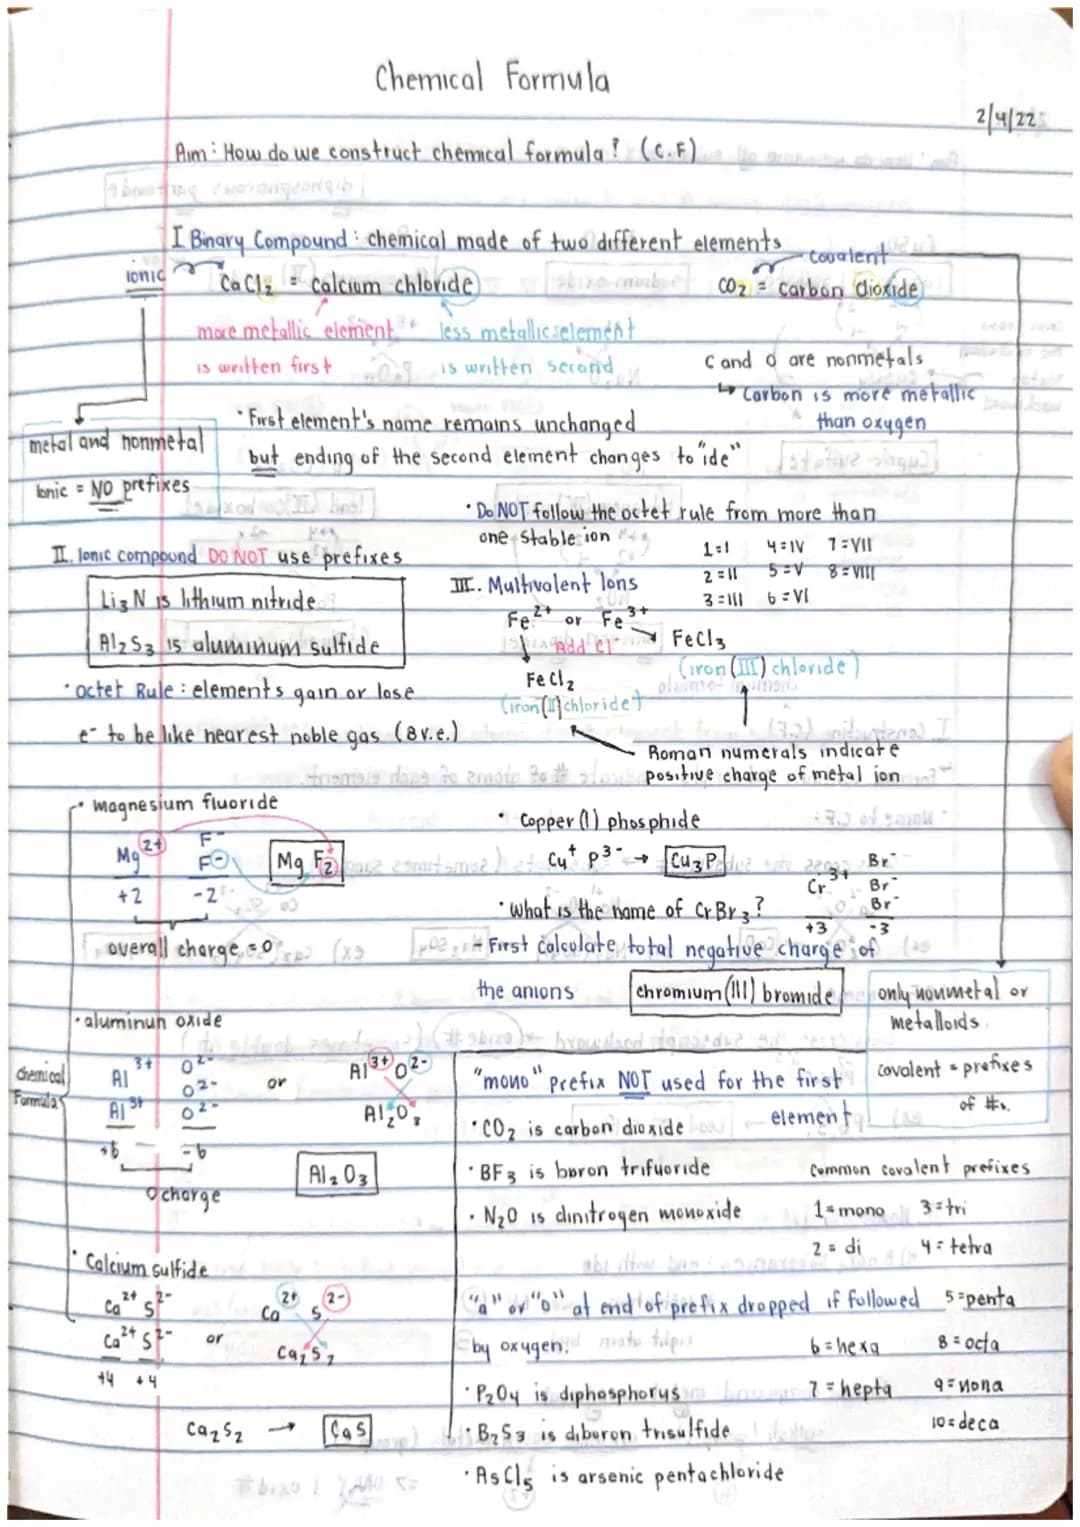 Chemical Formula
2/4/22
Aim: How do we construct chemical formula? (C.F)
I Binary Compound: chemical made of two different elements
ionic
CaCl₂ = Calcium chloride
covalent
CO₂ = Carbon dioxide
more metallic element
is written first
less metallic element
is written second
C and O are nonmetals
↳ Carbon is more metallic
than oxygen
metal and nonmetal
Ionic = NO prefixes
• First element's name remains unchanged
but ending of the second element changes to "ide"
• Do NOT follow the octet rule from more than
one stable ion
1=I 4=IV 7=VII
2=II 5=V 8=VIII
3=III 6=VI
II. Ionic compound DO NOT use prefixes
Li₃N is lithium nitride
Al₂S₃ is aluminum sulfide
• octet Rule: elements gain or lose
e⁻ to be like nearest noble gas (8 v.e.)
III. Multivalent Ions
Fe²⁺ or Fe³⁺
Add Cl⁻
FeCl₃
(iron(III) chloride)
FeCl₂
(iron(II) chloride)
Roman numerals indicate
positive charge of metal ion
• Magnesium fluoride
Mg²⁺ F⁻
F⁻
+2 -2
MgF₂
overall charge = 0
• Copper (I) phosphide
Cu⁺ P³⁻ → Cu₃P
• What is the name of CrBr₃?
Cr³⁺ Br⁻
Br⁻
Br⁻
+3 -3
- First calculate total negative charge of
the anions
chromium(III) bromide
only nonmetal or
metalloids
covalent = prefixes
of #s.
• aluminun oxide
chemical
Formulas
Al³⁺ O²⁻
O²⁻
Al³⁺ O²⁻
+6 -6
0 charge
or
Al³⁺ O²⁻
Al₂O₃
Al₂O₃
• Calcium sulfide
Ca²⁺ S²⁻
Ca²⁺ S²⁻
+4 +4
or
Ca²⁺ S²⁻
Ca₂S₂
Ca₂S₂ → CaS
"mono" prefix NOT used for the first
element
• CO₂ is carbon dioxide
• BF₃ is boron trifuoride
• N₂O is dinitrogen monoxide
common covalent prefixes
1=mono 3=tri
2=di 4=tetra
"a" or "o" at end of prefix dropped if followed
by oxygen.
5=penta
6=hexa 8=octa
7=hepta 9=nona
10=deca
• P₂O₄ is diphosphorys
• B₂S₃ is diboron trisulfide
• AsCl₅ is arsenic pentachloride